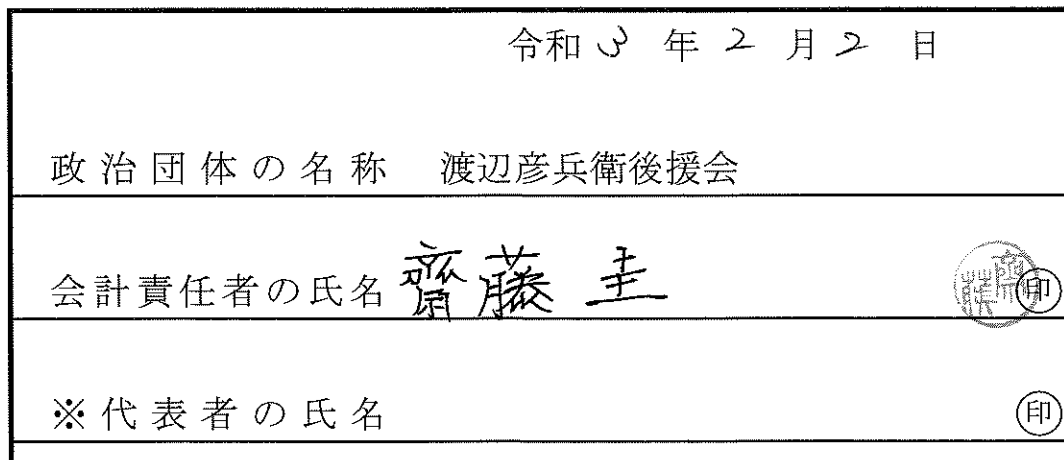 令和 3 年 2 月 2 日
政治団体の名称 渡辺彦兵衛後援会
会計責任者の氏名 齋藤 圭 齋藤 ㊞
※代表者の氏名 ㊞